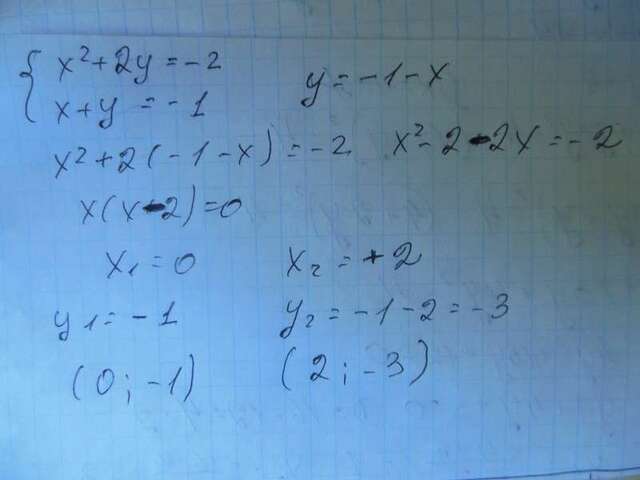 { x²+2y=-2
x+y=-1 y=-1-x
x²+2(-1-x)=-2 x²-2-2x=-2
x(x-2)=0
x₁=0 x₂=+2
y₁=-1 y₂=-1-2=-3
(0;-1) (2;-3)